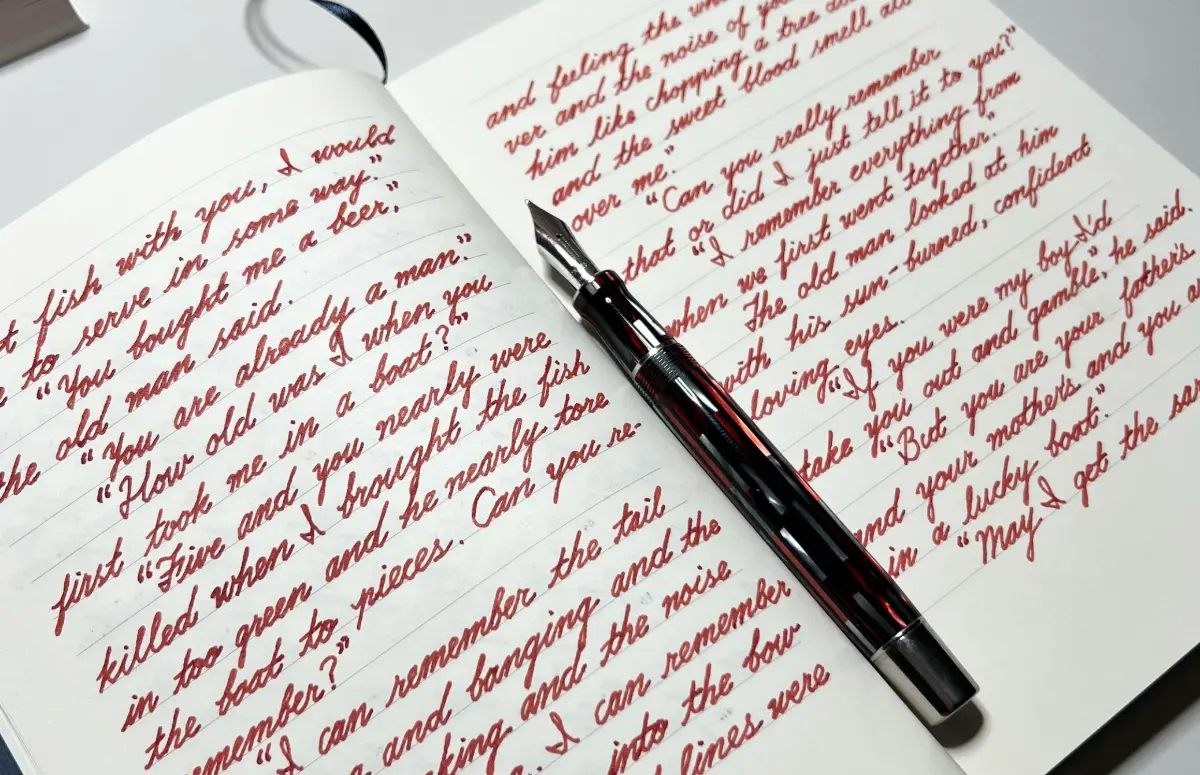 t fish with you, I would
e to serve in some way."
"You bought me a beer,"
the old man said.
"You are already a man."
"How old was I when you
first took me in a boat?"
"Five and you nearly were
killed when I brought the fish
in too green and he nearly tore
the boat to pieces. Can you re-
member?"
"I can remember the tail
and banging and the
king and the noise
I can remember
into the bow
lines were
and feeling the
ver and the noise of
him like chopping a tree
and the sweet blood smell all
over me."
"Can you really remember
that or did I just tell it to you?"
"I remember everything from
when we first went together."
The old man looked at him
with his sun-burned, confident
loving eyes.
"If you were my boy I'd
take you out and gamble," he said.
"But you are your father's
and your mother's and you a
in a lucky boat."
"May I get the sa